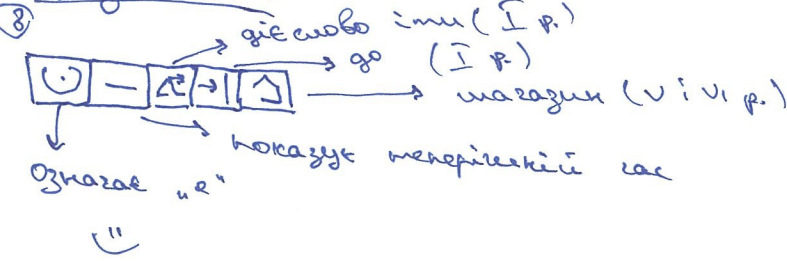 8
дієслово іти (I р.)
до (I р.)
магазин (V і VI р.)
показує теперішній час
Означає „е"